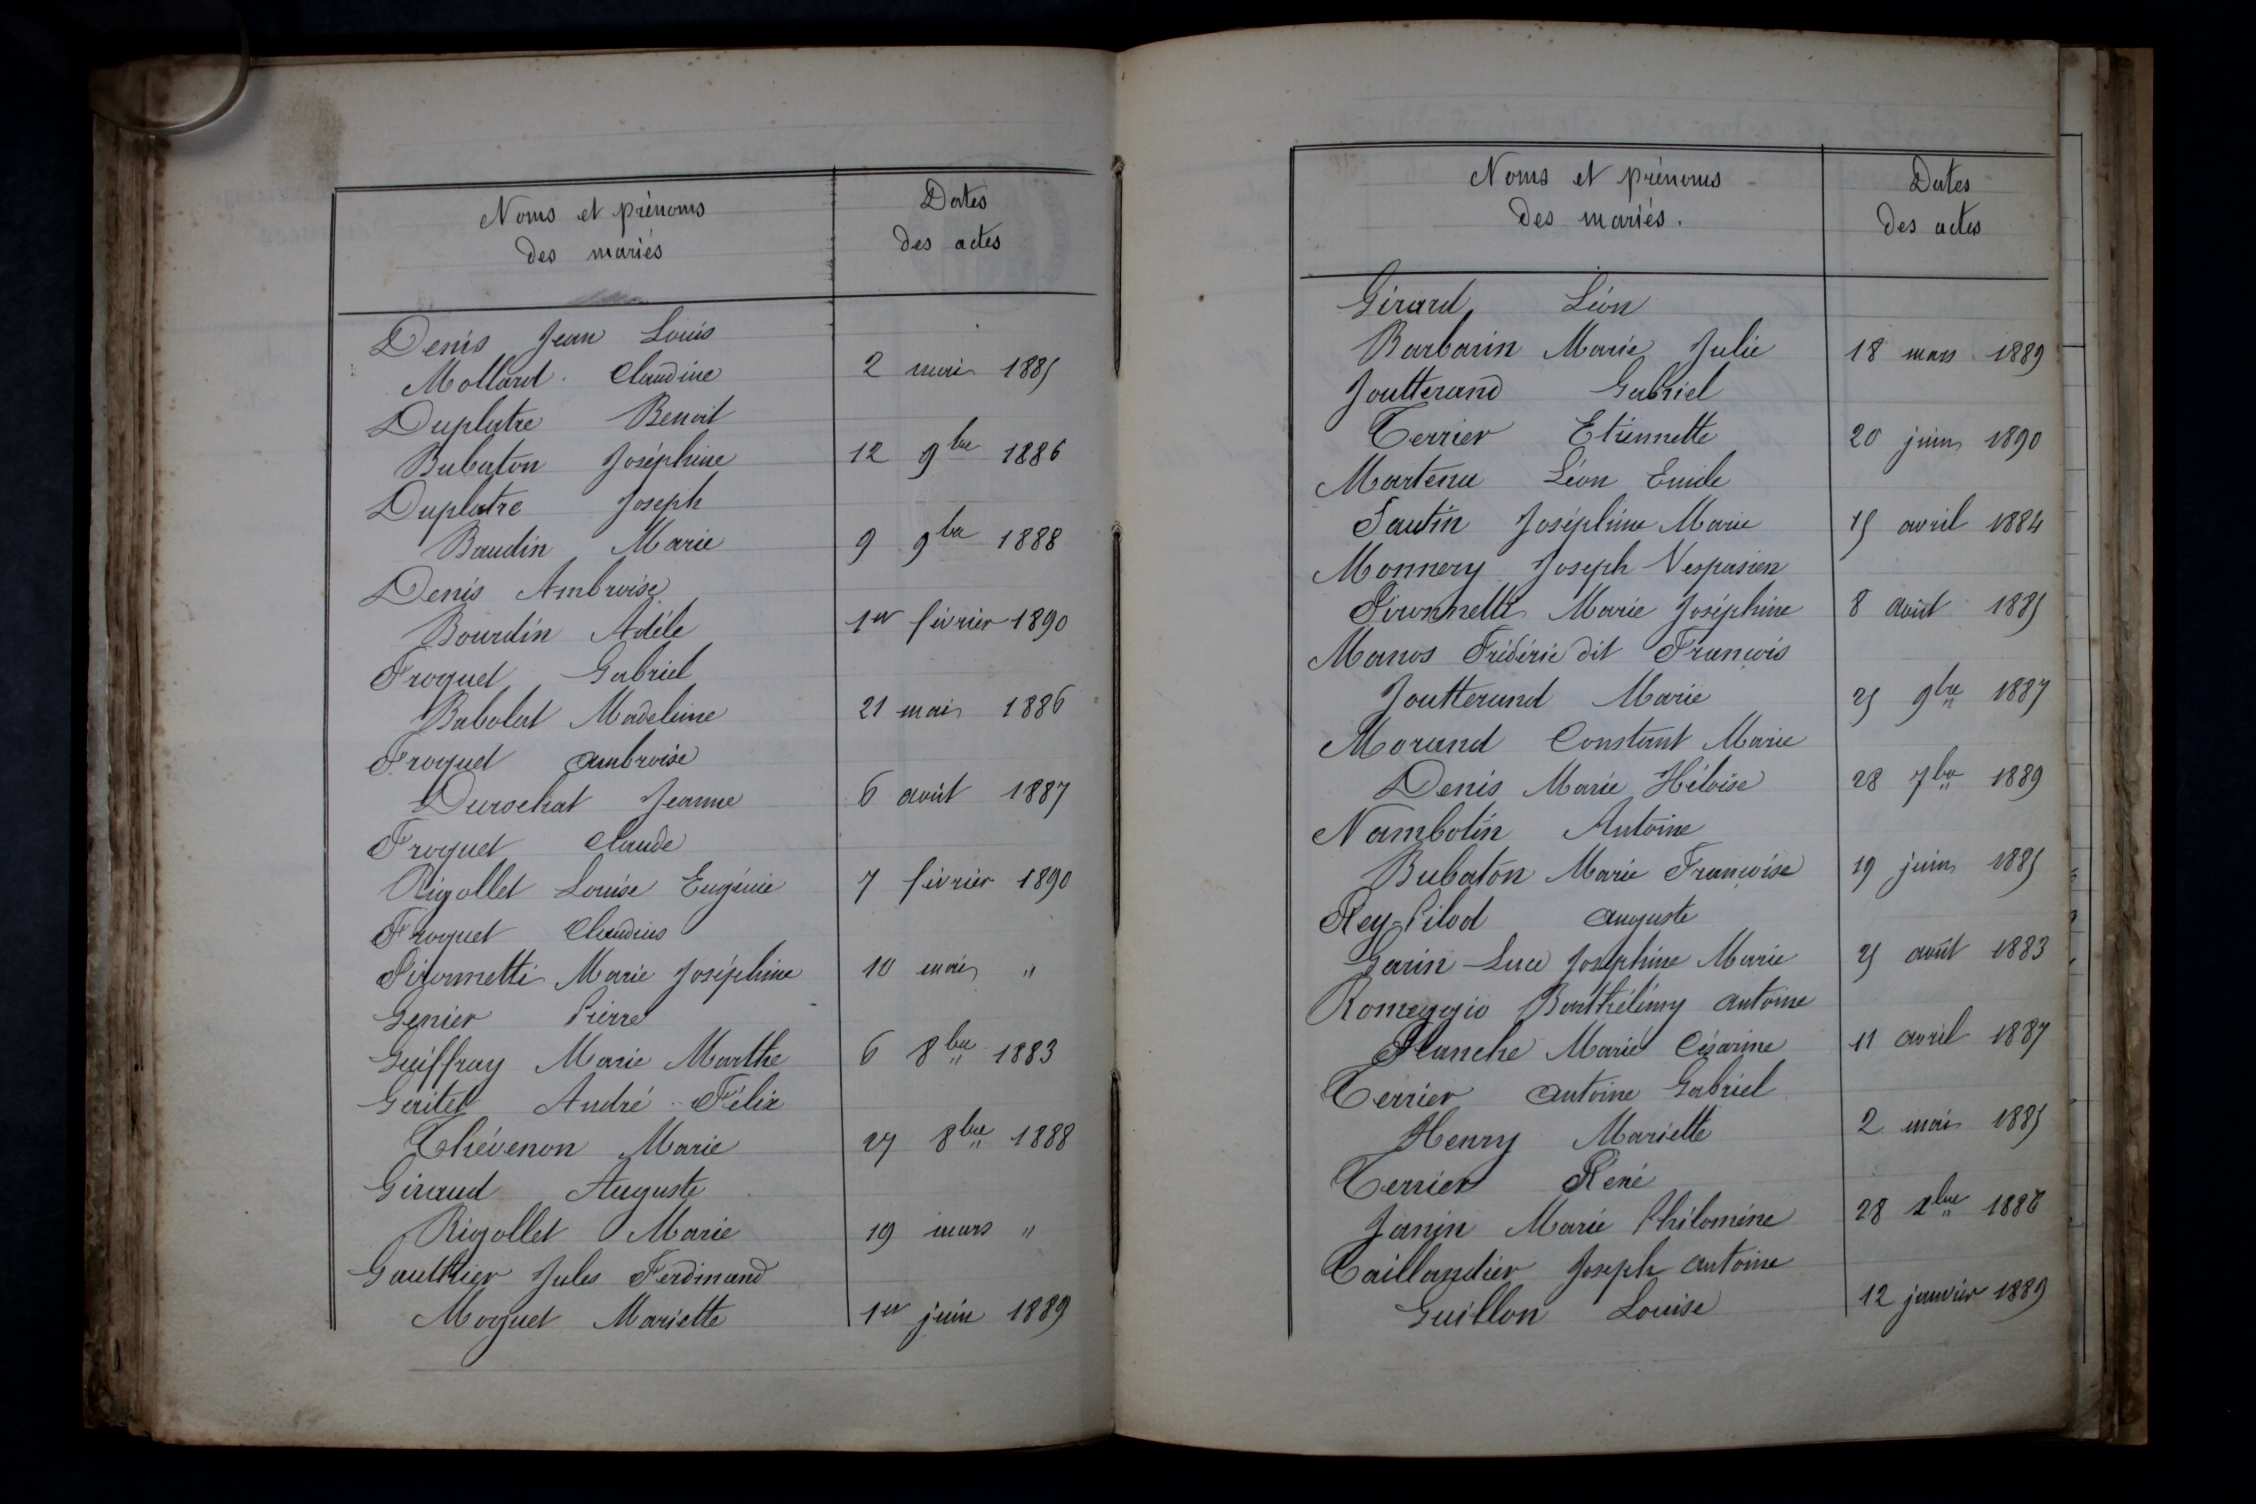 Noms et prénoms
des mariés
Dates
des actes
Denis Jean Louis
Mollard Claudine 2 mai 1885
Duplatre Benoit
Bubaton Joséphine 12 9bre 1886
Duplatre Joseph
Baudin Marie 9 9bre 1888
Denis Ambroise
Bourdin Adèle 1er février 1890
Froquet Gabriel
Babolat Madeleine 21 mai 1886
Froquet Ambroise
Durochat Jeanne 6 août 1887
Froquet Claude
Rigollet Louise Eugénie 7 février 1890
Froquet Claudius
Pironnetti Marie Joséphine 10 mai "
Genier Pierre
Guiffray Marie Marthe 6 8bre 1883
André Félix
Thévenon Marie 27 8bre 1888
Giraud Auguste
Rigollet Marie 19 mars "
Gauthier Jules Ferdinand
Moquet Mariette 1er juin 1889
Noms et prénoms
des mariés.
Dates
des actes
Girard Léon
Barbarin Marie Julie 18 mars 1889
Joutterand Gabriel
Terrier Etiennette 20 juin 1890
Martena Léon Emile
Pautin Joséphine Marie 15 avril 1884
Monnery Joseph Vespasien
Pironnetti Marie Joséphine 8 août 1885
Manos Frédéric dit François
Joutterand Marie 25 9bre 1887
Morand Constant Marie
Denis Marie Héloïse 28 7bre 1889
Nambotin Antoine
Bubaton Marie Françoise 19 juin 1885
Rey-Pilod Auguste
Garin-Luce Joséphine Marie 25 août 1883
Romeggio Barthélémy Antoine
Planche Marie Césarine 11 avril 1887
Terrier Antoine Gabriel
Henry Mariette 2 mai 1885
Terrier René
Janin Marie Philomène 28
Taillandier Joseph Antoine
Guillon Louise 12 janvier 1889